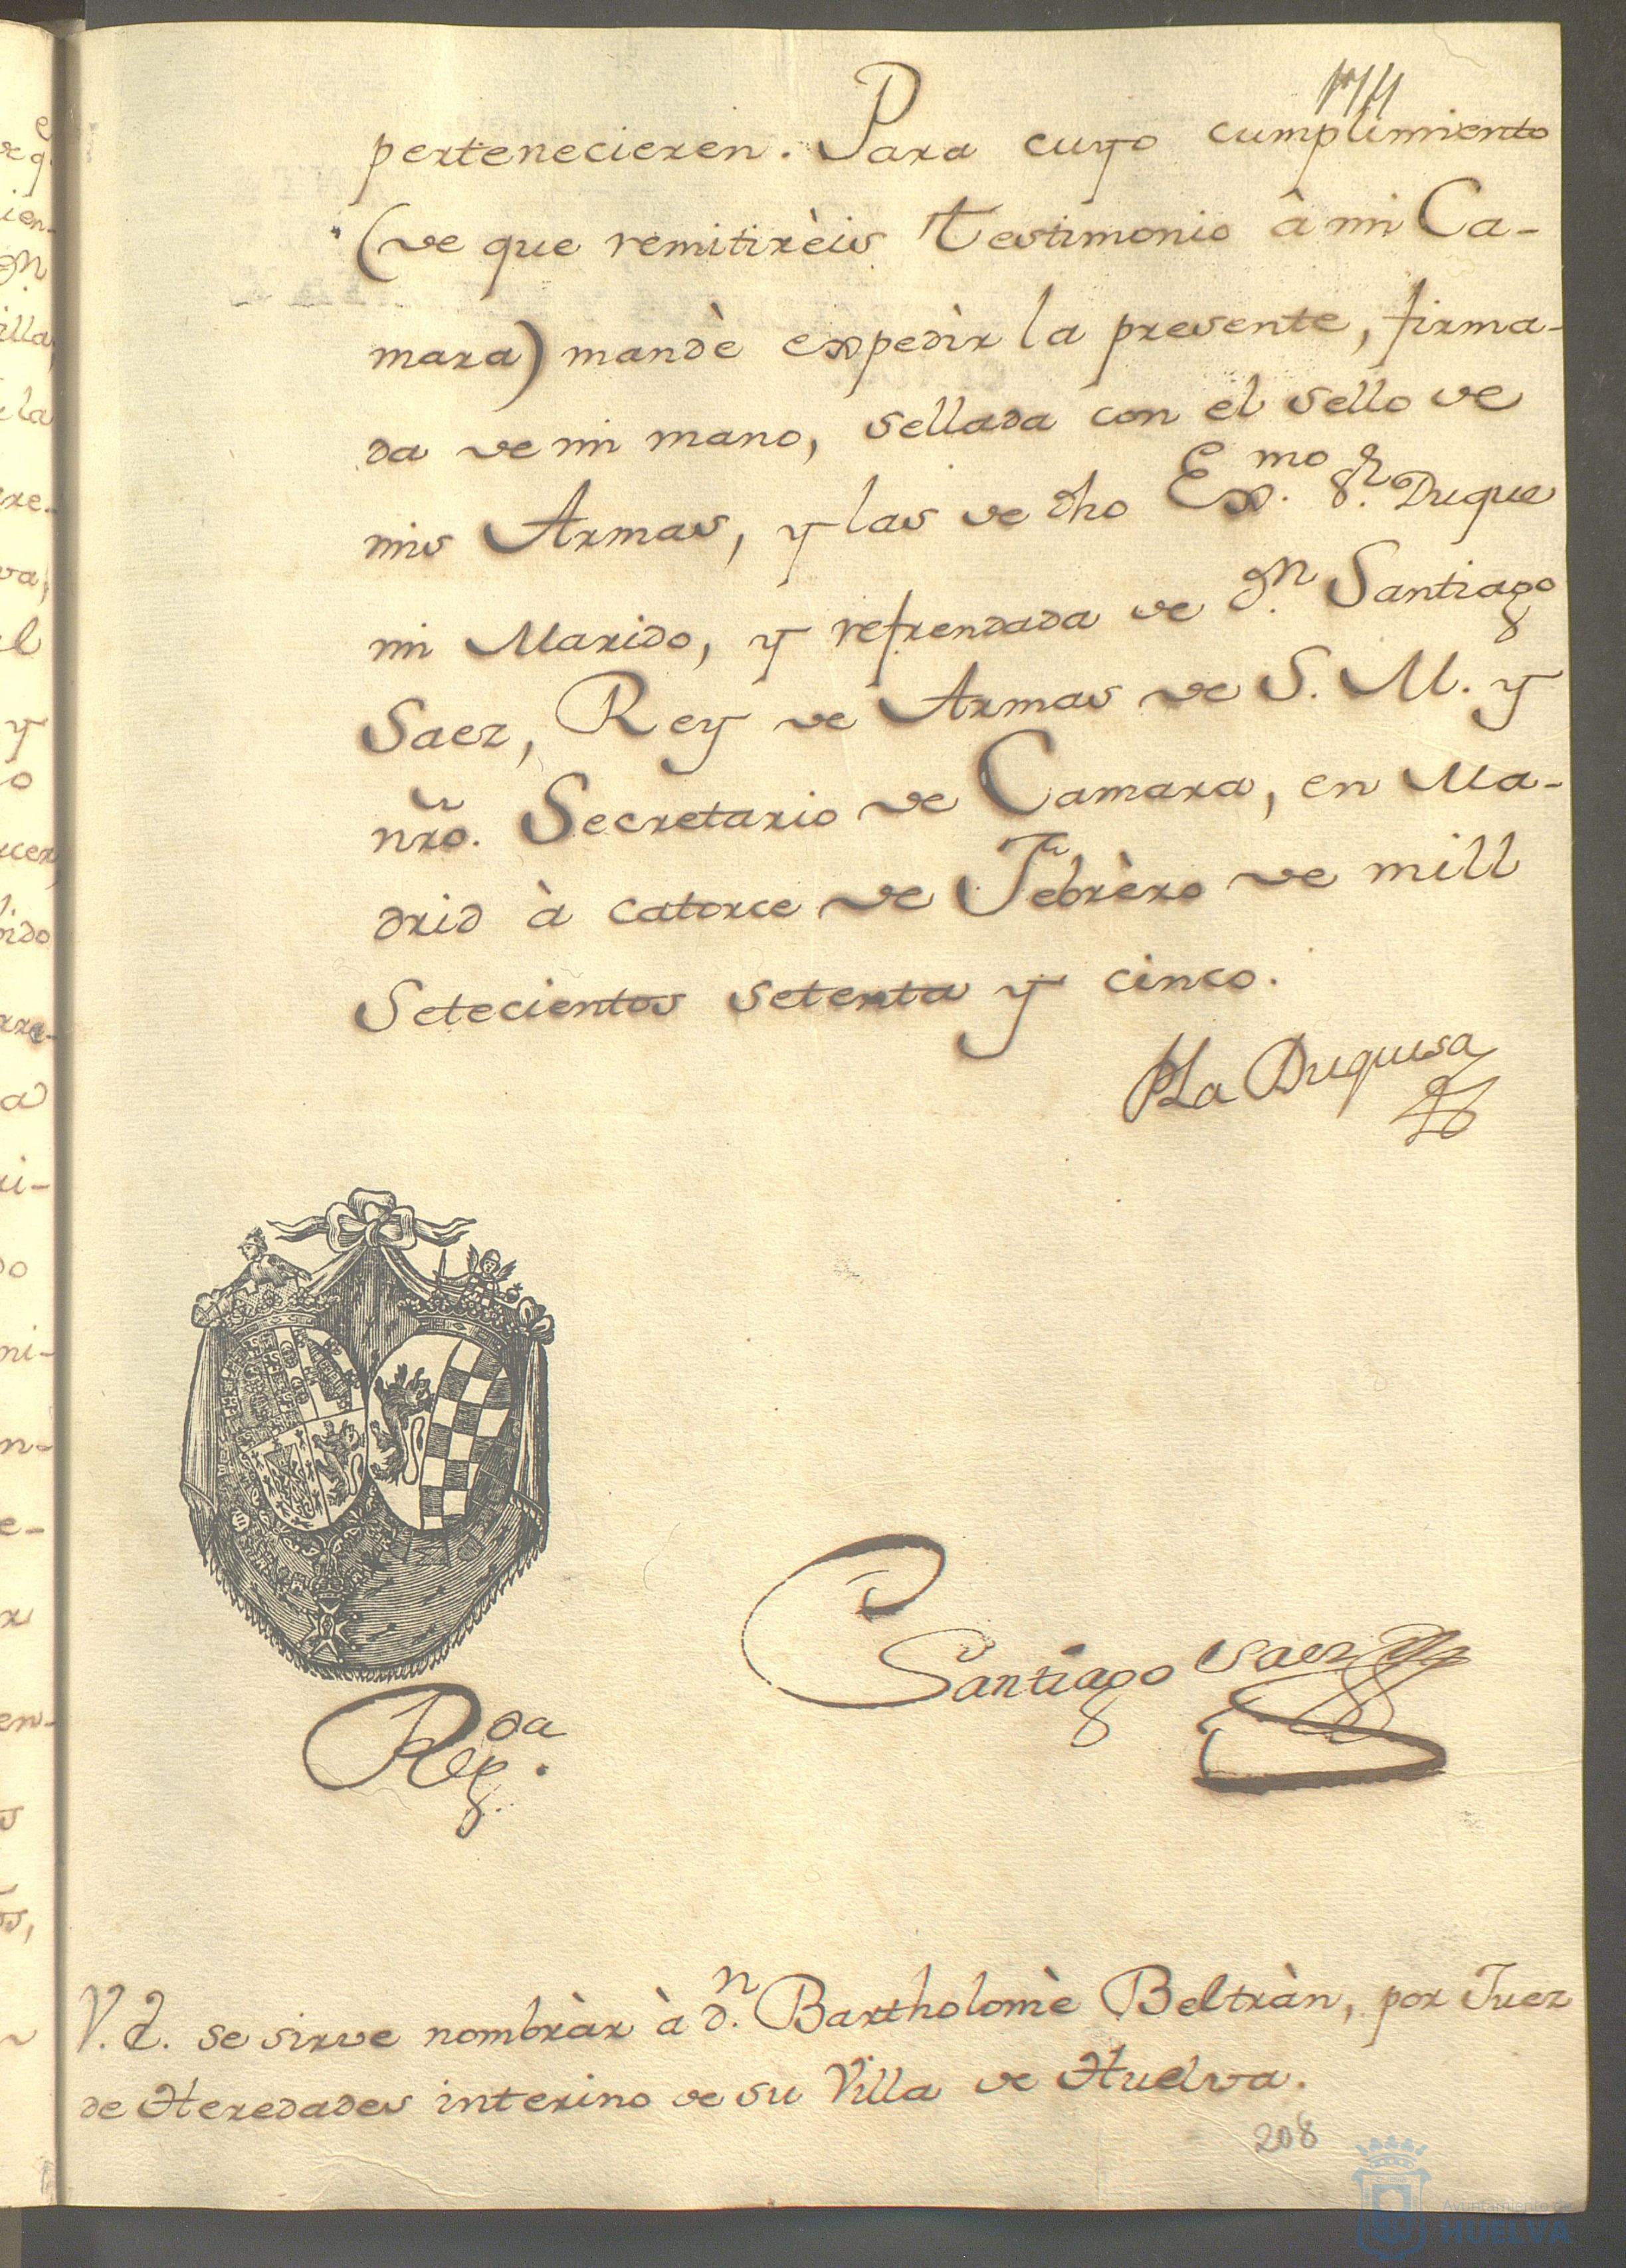 pertenecieren. Para cuyo cumplimiento
(de que remitirèis testimonio à mi Ca-
mara) mandè expedir la presente, firma-
da de mi mano, sellada con el sello de
mis Armas, y las de dho Exmo. Sr. Duque
mi Marido, y refrendada de Dn. Santiago
Saez, Rey de Armas de S. M. y
nro. Secretario de Camara, en Ma-
drid à catorce de Febrèro de mill
Setecientos setenta y cinco.
La Duquesa
Santiago Saez
Regda.
V. E. se sirve nombràr à dn. Bartholomè Beltràn, por Juez
de Heredades interino de su Villa de Huelva.
208
Ayuntamiento de
HUELVA